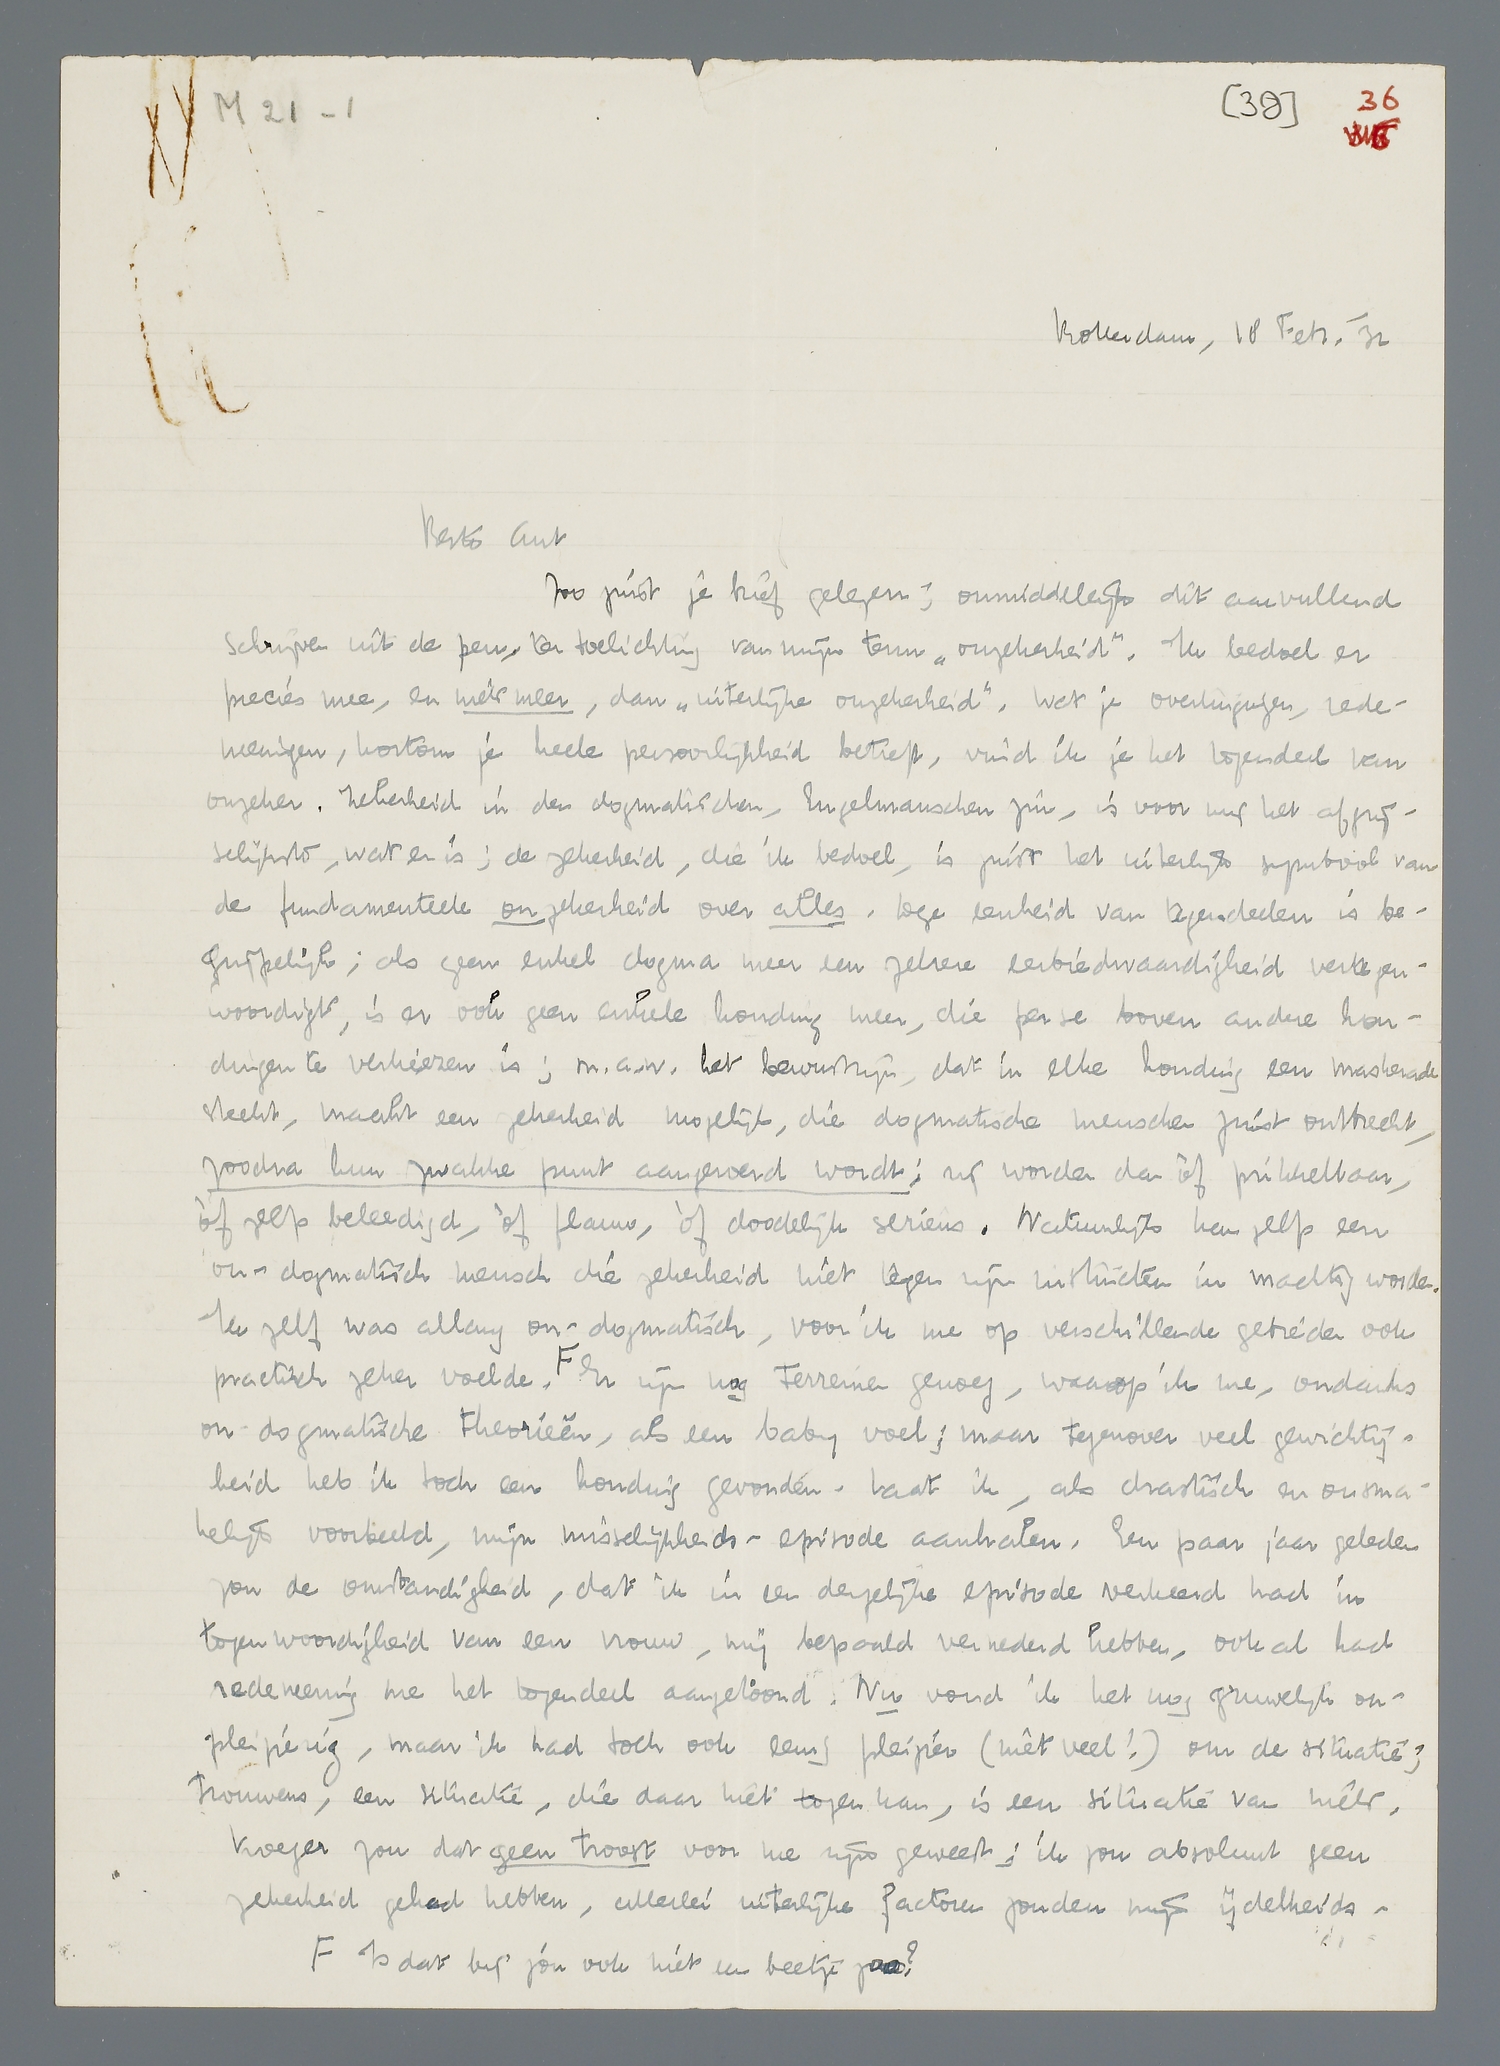 M 21 - 1
[38]
36
Rotterdam, 18 Febr. '32
Beste Ant
Zoo juist je brief gelezen; onmiddellijk dit aanvullend
schrijven uit de pen, ter toelichting van mijn term „onzekerheid". Ik bedoel er
precies mee, en niets meer, dan „uiterlijke onzekerheid". Wat je overtuigingen, rede-
neeringen, kortom je heele persoonlijkheid betreft, vind ik je het tegendeel van
onzeker. Zekerheid in den dogmatischen, Engelmanschen zin, is voor mij het afgrij-
selijkste, wat er is; de zekerheid, die ik bedoel, is juist het uiterlijk symbool van
de fundamenteele onzekerheid over alles. Deze eenheid van tegendeelen is be-
grijpelijk; als geen enkel dogma meer een zekere eerbiedwaardigheid vertegen-
woordigt, is er ook geen enkele houding meer, die per se boven andere hou-
dingen te verkiezen is; m.a.w. het bewustzijn, dat in elke houding een maskerade
steekt, maakt een zekerheid mogelijk, die dogmatische menschen juist ontbreekt,
zoodra hun zwakke punt aangeroerd wordt; zij worden dan òf prikkelbaar,
òf zelfs beleedigd, òf flauw, òf doodelijk serieus. Natuurlijk kan zelfs een
on-dogmatisch mensch die zekerheid niet tegen zijn instincten in machtig worden.
Ik zelf was allang on-dogmatisch, voor ik me op verschillende gebieden ook
practisch zeker voelde. F Er zijn nog terreinen genoeg, waarop ik me, ondanks
on-dogmatische theorieën, als een baby voel; maar tegenover veel gewichtig-
heid heb ik toch een houding gevonden. Laat ik, als drastisch en onsma-
kelijk voorbeeld, mijn misselijkheids-episode aanhalen. Een paar jaar geleden
zou de omstandigheid, dat ik in een dergelijke episode verkeerd had in
tegenwoordigheid van een vrouw, mij bepaald vernederd hebben, ook al had
redeneering me het tegendeel aangetoond. Nu vond ik het nog gruwelijk on-
pleizierig, maar ik had toch ook eenig pleizier (niet veel!) om de situatie;
trouwens, een situatie, die daar niet tegen kan, is een situatie van niets.
Vroeger zou dat geen troost voor me zijn geweest; ik zou absoluut geen
zekerheid gehad hebben, allerlei uiterlijke factoren zouden mijn ijdelheids-
F Is dat bij jóu ook niet een beetje zoo?